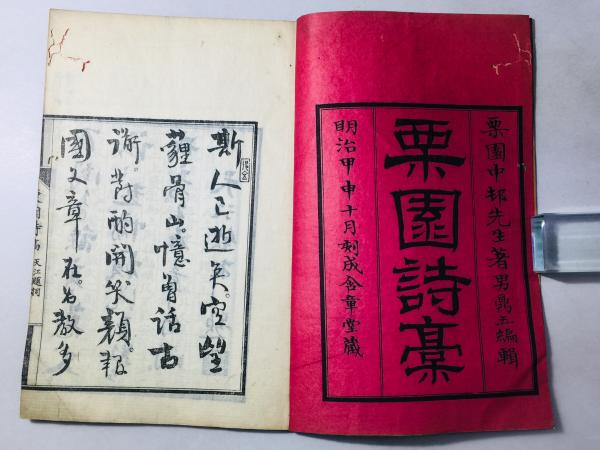 栗園中邨先生著男鼎五編輯
栗園詩稾
明治甲申十月刻成含章堂藏
斯人已逝矣。空望
薶骨山。憶曾話古
對酌開笑顏。報
國文章在。爲教多
天江題詞